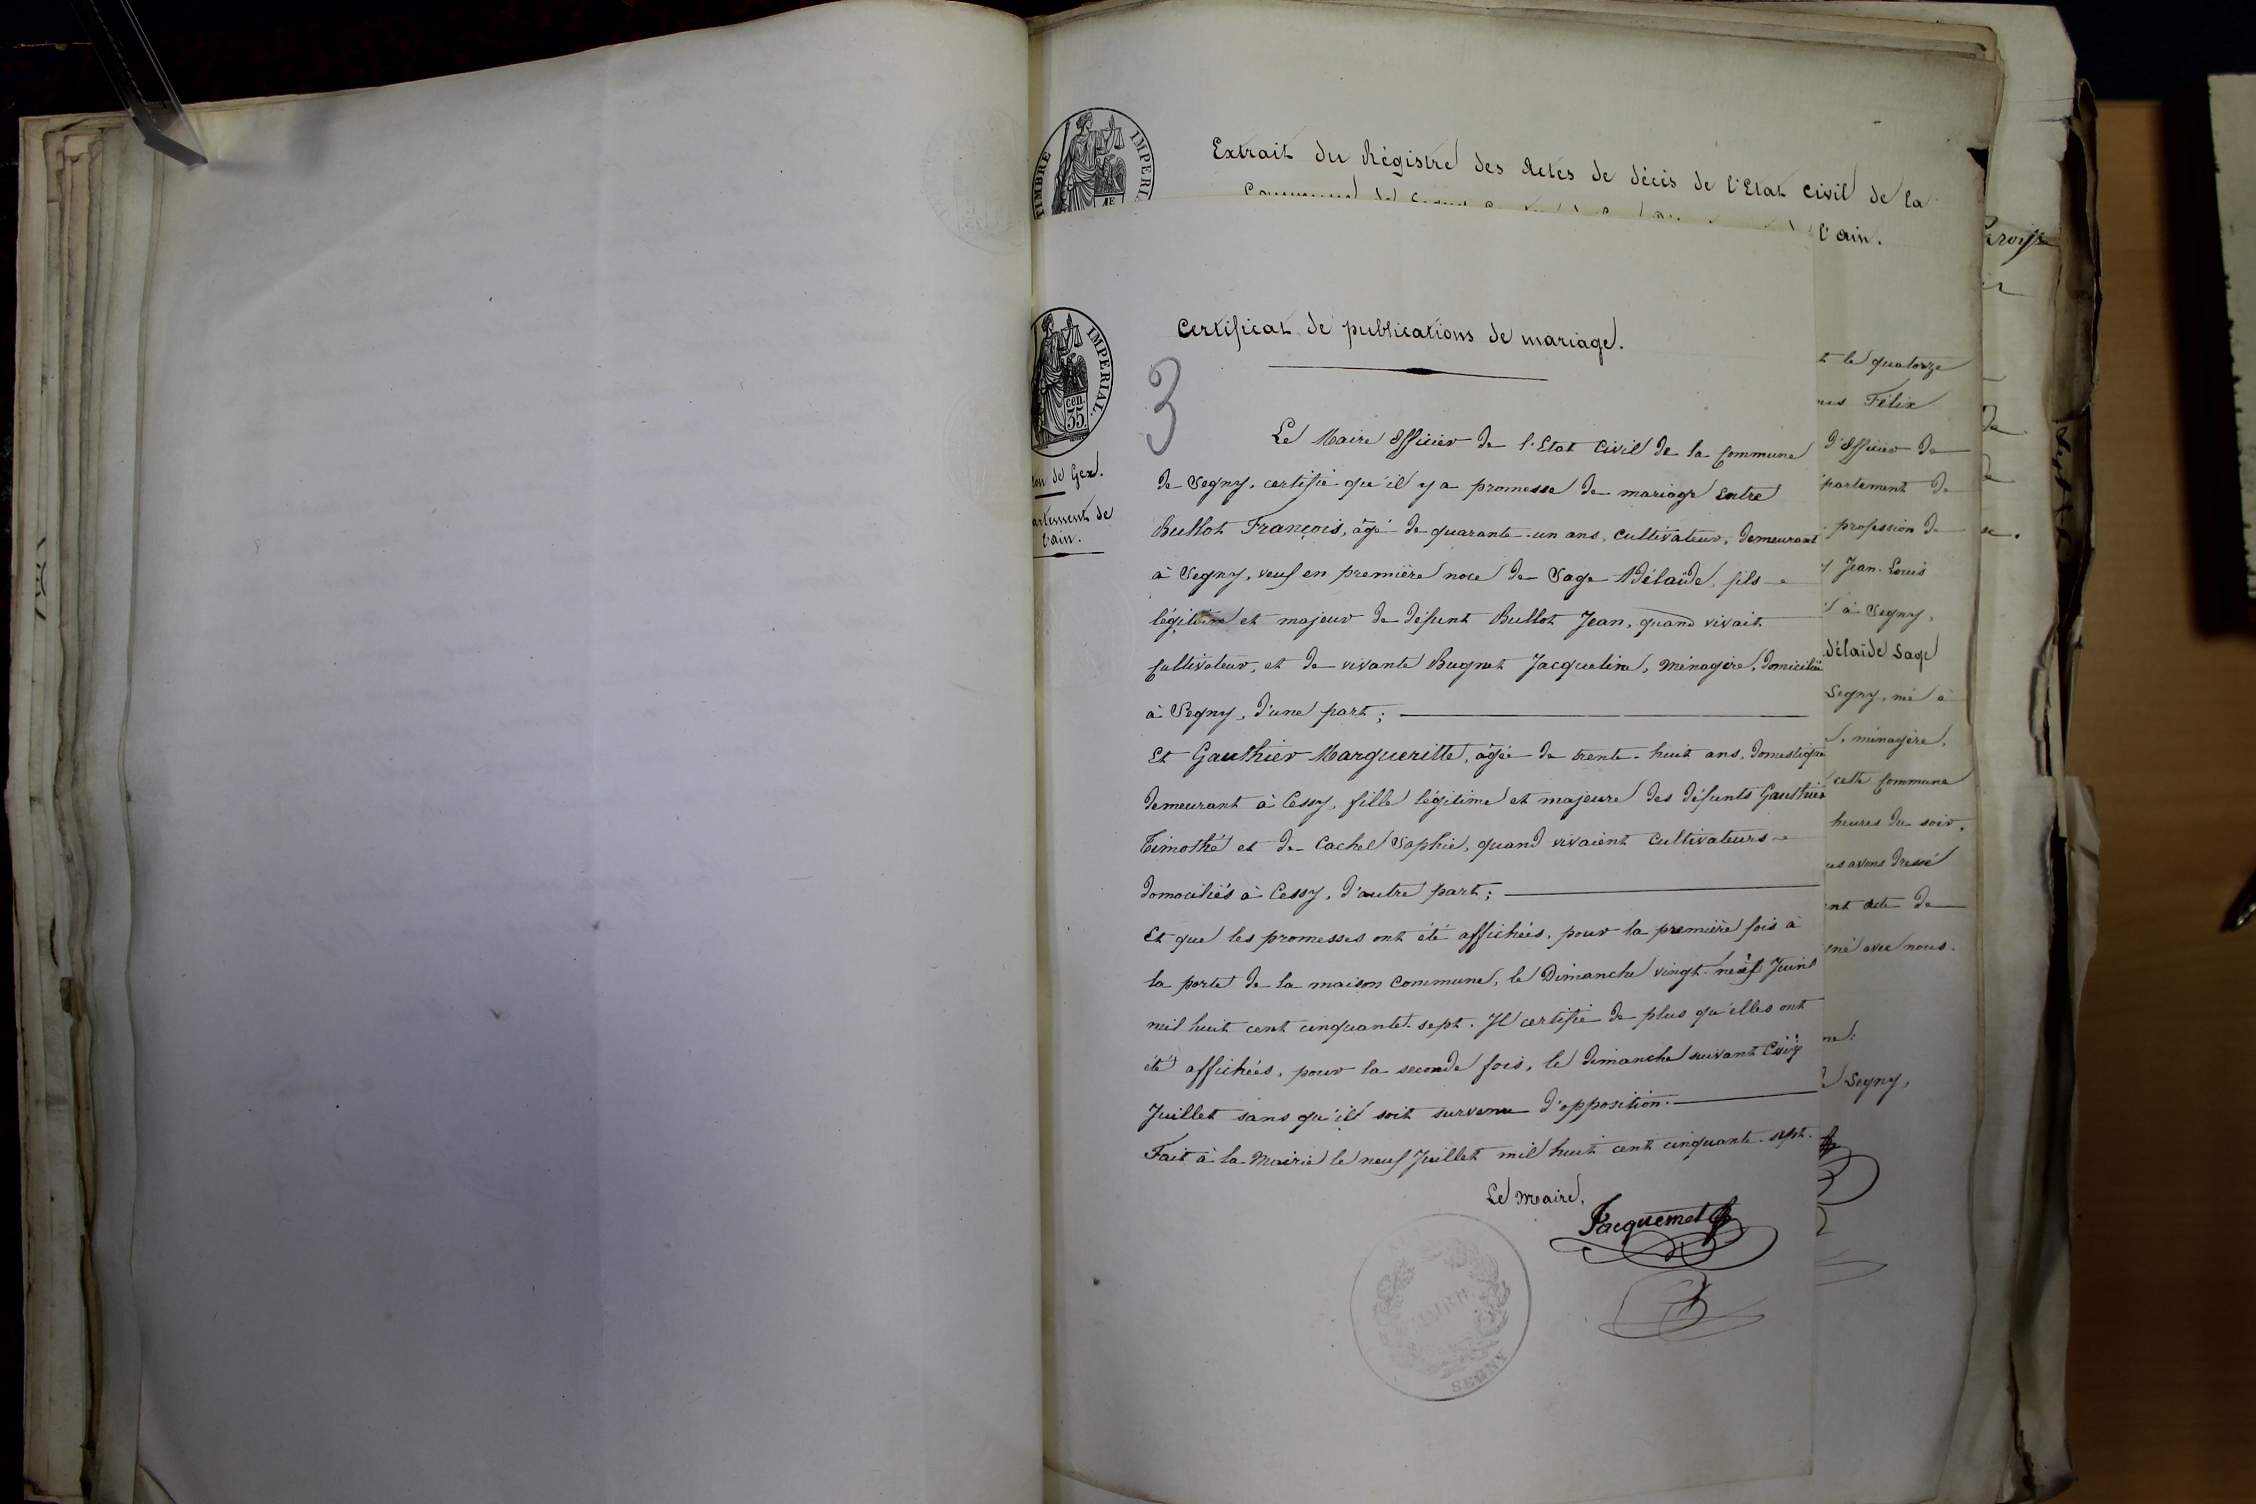 Extrait du Régistre des Actes de décès de l'Etat civil de la
l'ain.
TIMBRE IMPERIAL
IMPERIAL.
cen.
35.
Certificat de publications de mariage.
3
de Gex.
l'ain.
Le Maire Officier de l'Etat Civil de la Commune
de Segny, certifie qu'il y a promesse de mariage entre
Bullot François, âgé de quarante-un ans, cultivateur, demeurant
à Segny, veuf en première noce de Sage Adélaïde, fils
légitime et majeur de défunt Bullot Jean, quand vivait
Cultivateur, et de vivante Bugnet Jacqueline, ménagère, domiciliée
à Segny, d'une part;
Et Gauthier Margueritte, âgée de trente-huit ans, domestique
demeurant à Cessy, fille légitime et majeure des défunts Gauthier
Timothé et de Cachel Sophie, quand vivaient Cultivateurs
domociliés à Cessy, d'autre part;
Et que les promesses ont été affichées, pour la première fois à
la porte de la maison Commune, le Dimanche vingt-neuf Juin
mil huit cent cinquante-sept. Il certifie de plus qu'elles ont
été affichées, pour la seconde fois, le dimanche suivant Cinq
Juillet sans qu'il soit survenu d'opposition.
Fait à la Mairie le neuf Juillet mil huit cent cinquante-sept.
Le Maire,
Jacquemet
SEGNY
le quatorze
Félix
d'Officier de
profession de
Jean-Louis
à Segny,
Sage
Segny, né à
ménagère,
cette Commune
heures du soir,
avons dressé
acte de
avec nous.
Segny,